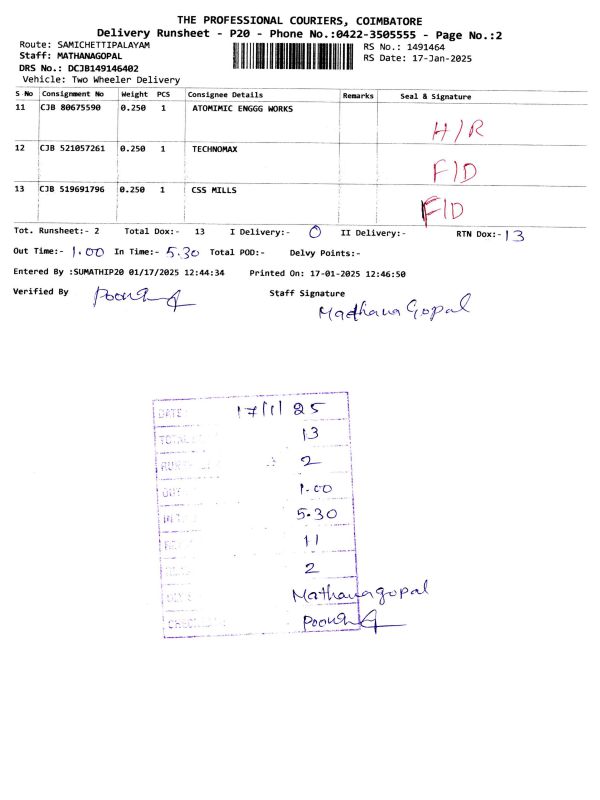 THE PROFESSIONAL COURIERS, COIMBATORE
Delivery Runsheet - P20 - Phone No.:0422-3505555 - Page No.:2
Route: SAMICHETTIPALAYAM RS No.: 1491464
Staff: MATHANAGOPAL RS Date: 17-Jan-2025
DRS No.: DCJB149146402
Vehicle: Two Wheeler Delivery
S No Consignment No Weight PCS Consignee Details Remarks Seal & Signature
11 CJB 80675590 0.250 1 ATOMIMIC ENGGG WORKS H/R
12 CJB 521057261 0.250 1 TECHNOMAX F/D
13 CJB 519691796 0.250 1 CSS MILLS F/D
Tot. Runsheet:- 2 Total Dox:- 13 I Delivery:- 0 II Delivery:- RTN Dox:- 13
Out Time:- 1.00 In Time:- 5.30 Total POD:- Delvy Points:-
Entered By :SUMATHIP20 01/17/2025 12:44:34 Printed On: 17-01-2025 12:46:50
Verified By Staff Signature
Madhana Gopal
DATE: 17/1/25
TOTAL 13
2
1.00
5.30
11
2
Mathanagopal